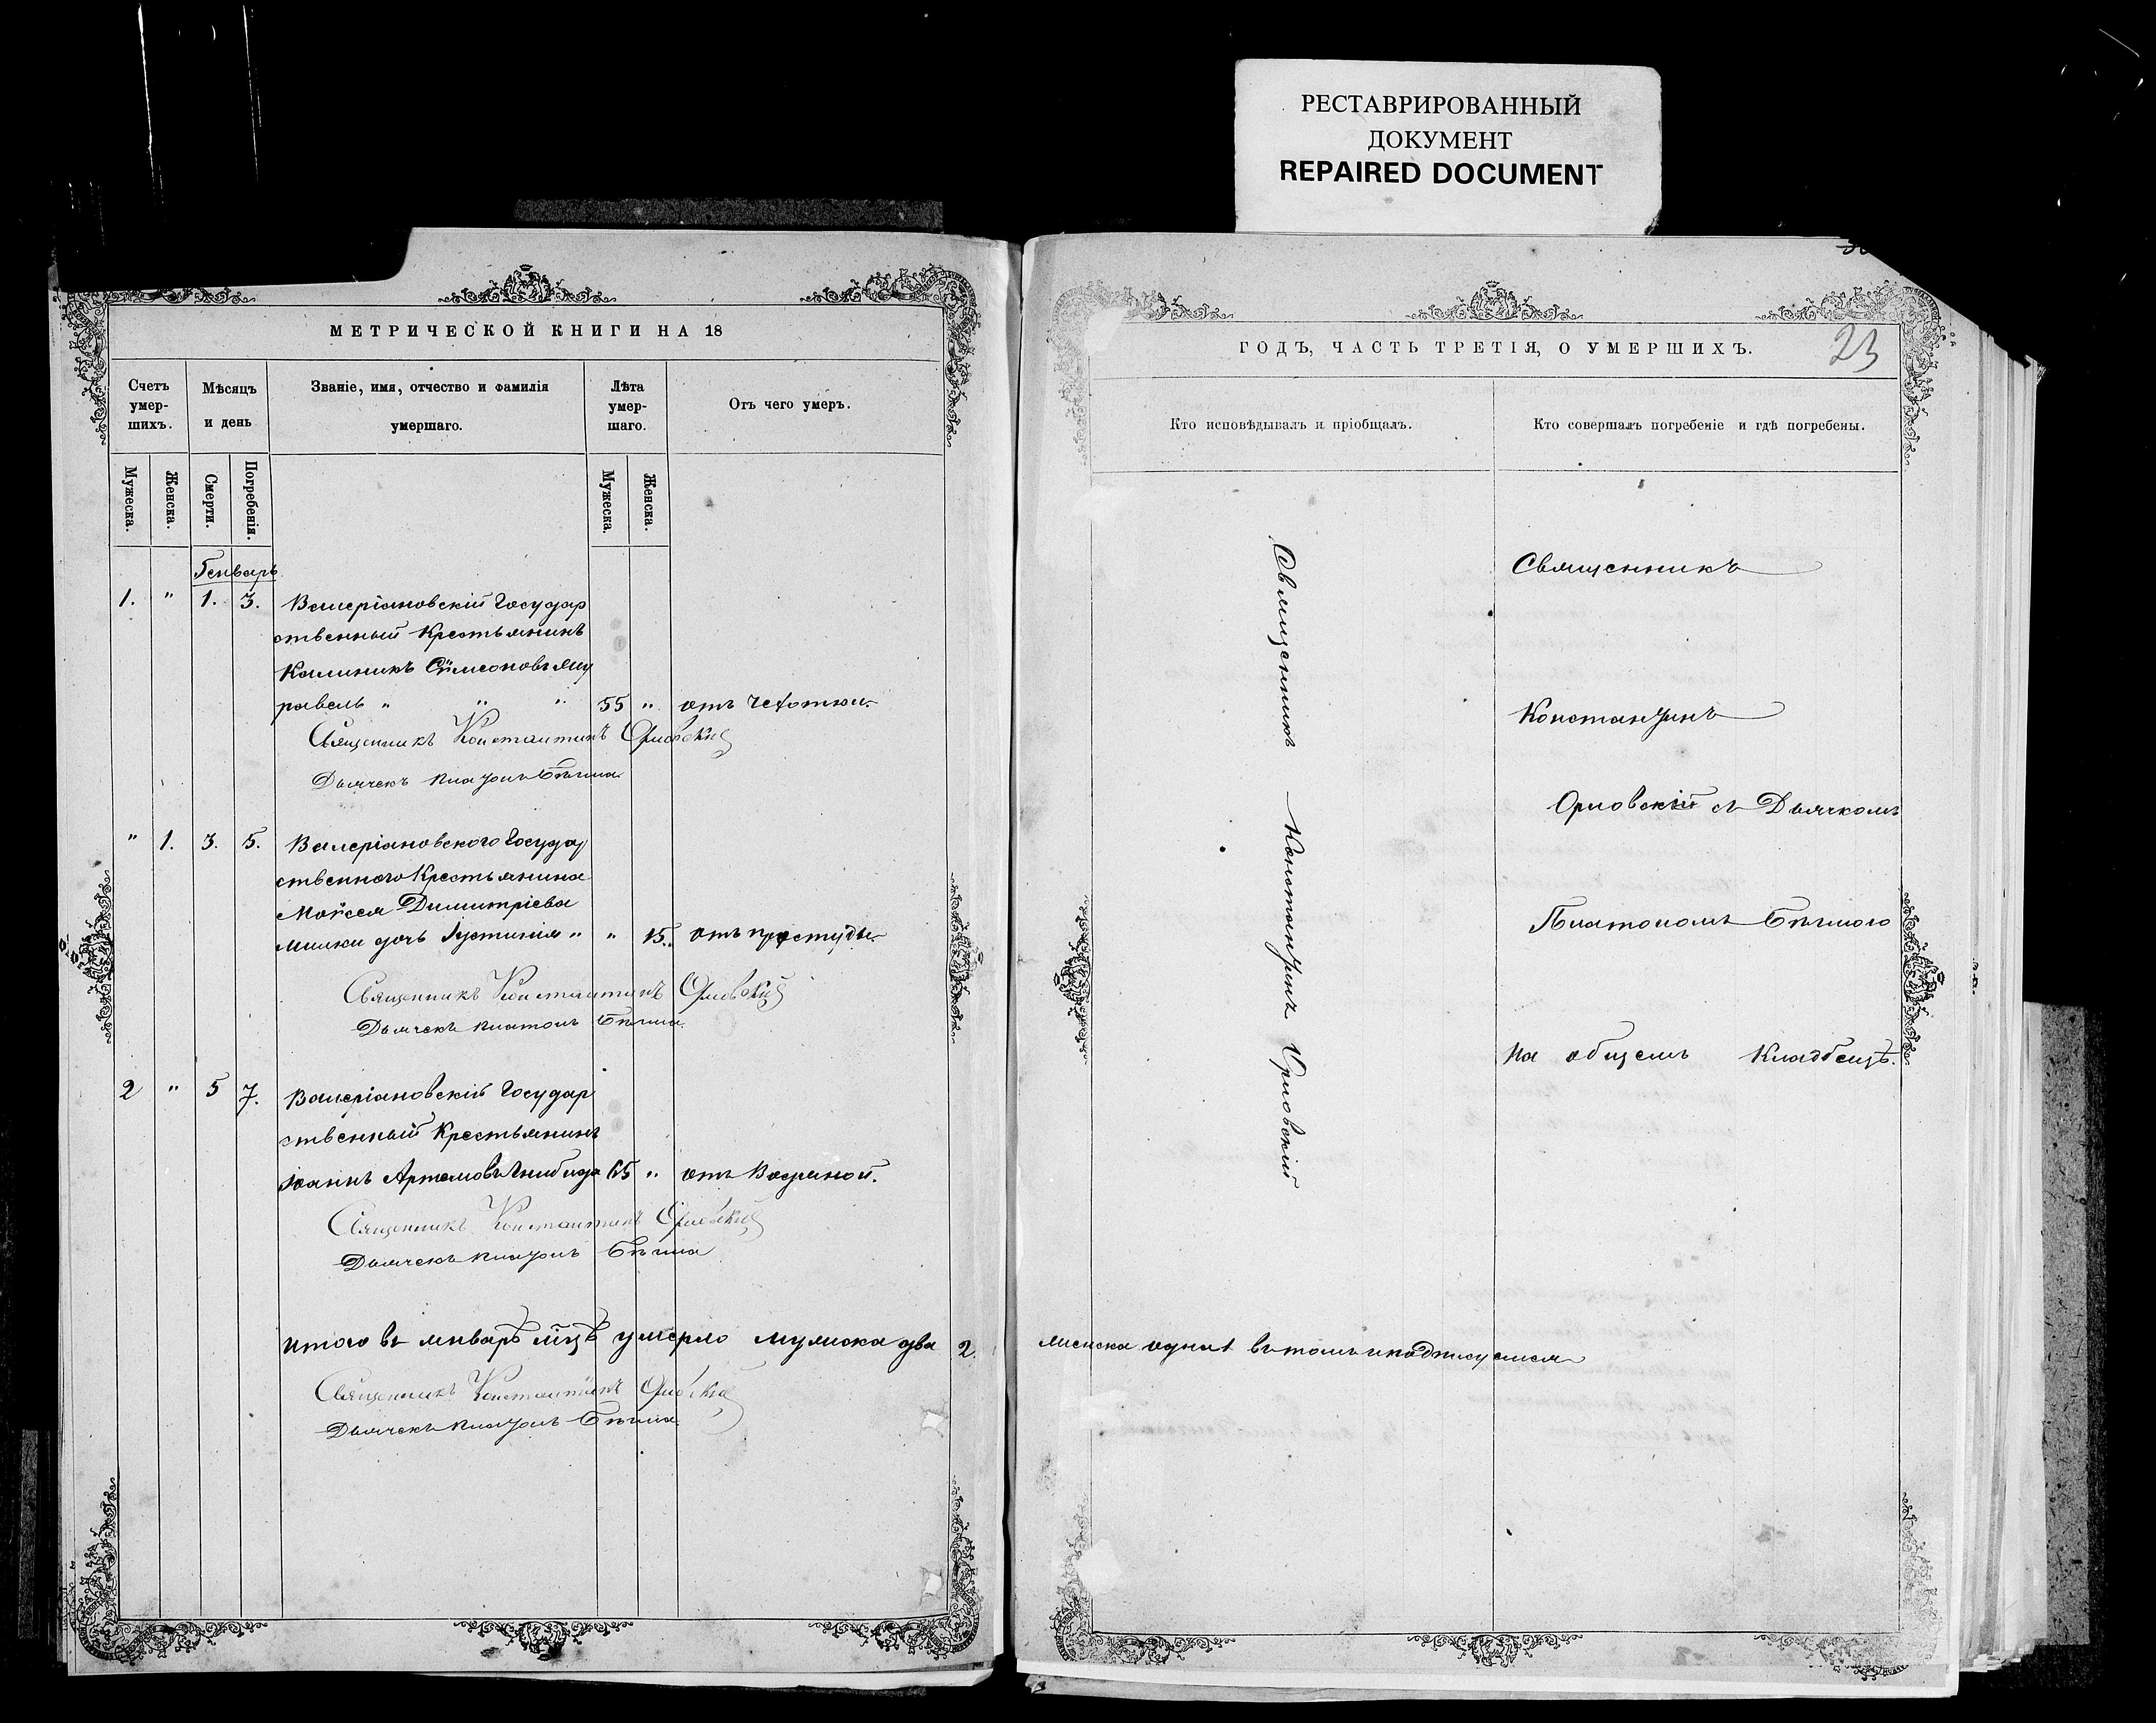 РЕСТАВРИРОВАННЫЙ
ДОКУМЕНТ
REPAIRED DOCUMENT
МЕТРИЧЕСКОЙ КНИГИ НА 18
Счетъ умер-шихъ.
Мѣсяцъ и день
Званіе, имя, отчество и фамилія умершаго.
Лѣта умер-шаго.
Отъ чего умеръ.
Мужеска.
Женска.
Смерти.
Погребенія.
Мужеска.
Женска.
Генварь
1. " 1. 3. Валеріановскій Государ
ственный Крестьянинъ
Калиникъ Сѵмеоновъ
равель " " " 55 " отъ чехотки.
Священникъ Константинъ Орловскій
Дьячекъ Платонъ
" 1. 3. 5. Валеріановского Государ
ственного Крестьянина
Моѵсея Димитріева
дочь Іустинія " " 15. отъ простуды.
Священникъ Константинъ Орловскій
Дьячекъ Платонъ
2 " 5 7. Валеріановскій Государ
ственный Крестьянинъ
Іоаннъ Артемовъ 65 " отъ Водяной.
Священникъ Константинъ Орловскій
Дьячекъ Платонъ
Итого въ январѣ м͠цѣ умерло мужеска два 2.
Священникъ Константинъ Орловскій
Дьячекъ Платонъ
ГОДЪ, ЧАСТЬ ТРЕТІЯ, О УМЕРШИХЪ.
23
Кто исповѣдывалъ и пріобщалъ.
Кто совершалъ погребеніе и гдѣ погребены.
Священникъ Константинъ Орловскій
Священникъ
Константинъ
Орловскій съ Дьячкомъ
Платономъ
на общемъ Кладбищѣ.
женска одна 1 въ томъ и подписуемся